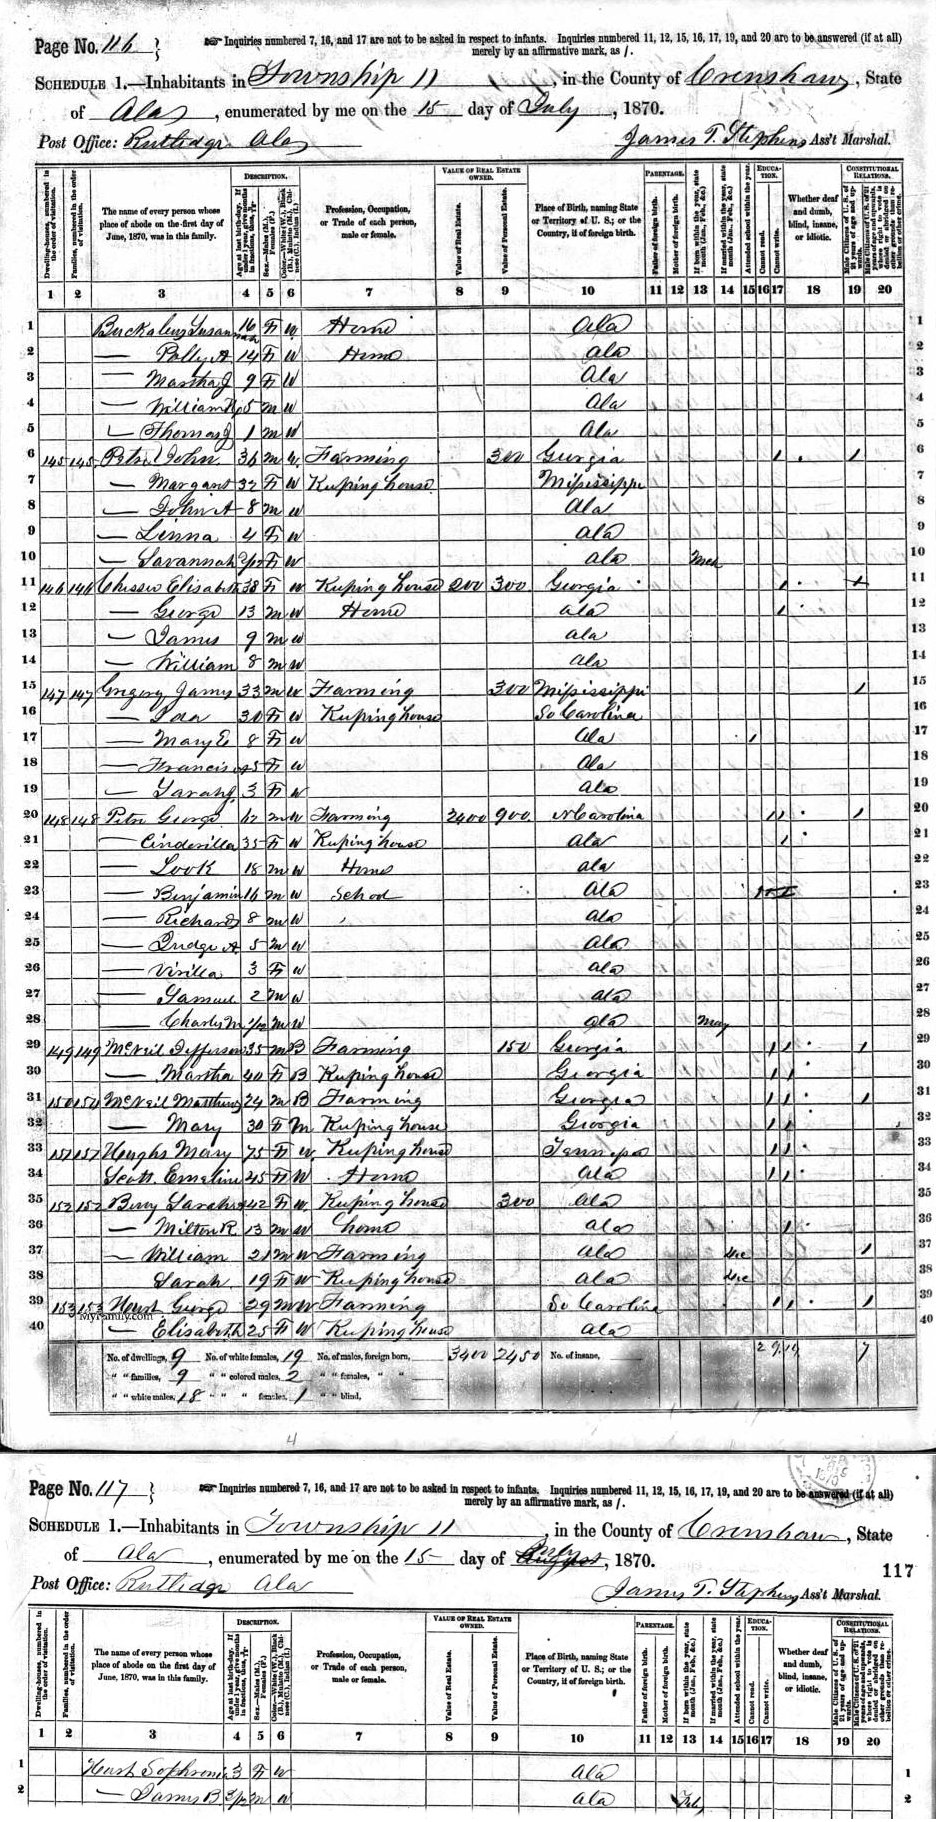 Page No. 116
☞ Inquiries numbered 7, 16, and 17 are not to be asked in respect to infants. Inquiries numbered 11, 12, 15, 16, 17, 19, and 20 are to be answered (if at all)
merely by an affirmative mark, as /.
SCHEDULE 1.—Inhabitants in Township 11, in the County of Crenshaw, State
of Ala, enumerated by me on the 15 day of July, 1870.
Post Office: Rutledge Ala James T. Stephens Ass't Marshal.
Dwelling-houses, numbered in the order of visitation.
Families, numbered in the order of visitation.
The name of every person whose place of abode on the first day of June, 1870, was in this family.
DESCRIPTION.
Age at last birth-day. If under 1 year, give months in fractions, thus,
Sex.—Males (M.), Females (F.)
Color.—White (W.), Black (B.), Mulatto (M.), Chinese (C.), Indian (I.)
Profession, Occupation, or Trade of each person, male or female.
VALUE OF REAL ESTATE OWNED.
Value of Real Estate.
Value of Personal Estate.
Place of Birth, naming State or Territory of U. S.; or the Country, if of foreign birth.
PARENTAGE.
Father of foreign birth.
Mother of foreign birth.
If born within the year, state month (Jan., Feb., &c.)
If married within the year, state month (Jan., Feb., &c.)
Attended school within the year.
EDUCATION.
Cannot read.
Cannot write.
Whether deaf and dumb, blind, insane, or idiotic.
CONSTITUTIONAL RELATIONS.
Male Citizens of U. S. of 21 years of age and upwards.
1 2 3 4 5 6 7 8 9 10 11 12 13 14 15 16 17 18 19 20
1 Susan 16 F W Home Ala 1
2 — Polly A 14 F W Home Ala 2
3 — Martha J 9 F W Ala 3
4 — William 5 M W Ala 4
5 — Thomas J 1 M W Ala 5
6 145 145 John 36 M W Farming 300 Georgia / / 6
7 — Margaret 32 F W Kuping house Mipissippi 7
8 — John A 8 M W Ala 8
9 — Linna 4 F W Ala 9
10 — Savannah F W Ala Mch 10
11 146 146 Elisabeth 38 F W Kuping house 200 300 Georgia / 11
12 — George 13 M W Home Ala / 12
13 — James 9 M W Ala 13
14 — William 8 M W Ala 14
15 147 147 Gregory James 33 M W Farming 300 Mipissippi / 15
16 — Ida 30 F W Kuping house So Carolina 16
17 — Mary E 8 F W Ala / 17
18 — Francis 5 F W Ala 18
19 — Sarah J 3 F W Ala 19
20 148 148 George 62 M W Farming 2400 900 N Carolina / / / 20
21 — Cinderilla 35 F W Kuping house Ala / 21
22 — Look 18 M W Home Ala 22
23 — Benjamin 16 M W School Ala 23
24 — Richard 8 M W Ala 24
25 — Judge A 5 M W Ala 25
26 — Virilla 3 F W Ala 26
27 — Samuel 2 M W Ala 27
28 — Charly M M W Ala May 28
29 149 149 McNeil Jefferson 35 M B Farming 150 Georgia / / / 29
30 — Martha 40 F B Kuping house Georgia / / 30
31 150 150 McNeil Matthew 24 M B Farming Georgia / / / 31
32 — Mary 30 F M Kuping house Georgia / / 32
33 151 151 Hughs Mary 75 F W Kuping house / / 33
34 Scott Emeline 45 F W Home Ala / / 34
35 152 152 Berry Sarah 42 F W Kuping house 300 Ala 35
36 — Milton R 13 M W home Ala / 36
37 — William 21 M W Farming Ala Dec / 37
38 Sarah 19 F W Kuping house Ala Dec 38
39 153 153 Hurst George 29 M W Farming So Carolina / / / 39
MyFamily.com
40 — Elisabeth 25 F W Kuping house Ala 40
No. of dwellings, 9 No. of white females, 19 No. of males, foreign born, 3400 2450 No. of insane, 7
" " families, 9 " " colored males, 2 " " females, " "
" " white males, 18 " " " females, 1 " " blind,
4
Page No. 117
☞ Inquiries numbered 7, 16, and 17 are not to be asked in respect to infants. Inquiries numbered 11, 12, 15, 16, 17, 19, and 20 are to be answered (if at all)
merely by an affirmative mark, as /.
SCHEDULE 1.—Inhabitants in Township 11, in the County of Crenshaw, State
of Ala, enumerated by me on the 15 day of July, 1870.
117
Post Office: Rutledge Ala James T. Stephens Ass't Marshal.
Dwelling-houses, numbered in the order of visitation.
Families, numbered in the order of visitation.
The name of every person whose place of abode on the first day of June, 1870, was in this family.
DESCRIPTION.
Profession, Occupation, or Trade of each person, male or female.
VALUE OF REAL ESTATE OWNED.
Value of Real Estate.
Value of Personal Estate.
Place of Birth, naming State or Territory of U. S.; or the Country, if of foreign birth.
PARENTAGE.
Father of foreign birth.
Mother of foreign birth.
If born within the year, state month (Jan., Feb., &c.)
If married within the year, state month (Jan., Feb., &c.)
Attended school within the year.
EDUCATION.
Cannot read.
Cannot write.
Whether deaf and dumb, blind, insane, or idiotic.
CONSTITUTIONAL RELATIONS.
1 2 3 4 5 6 7 8 9 10 11 12 13 14 15 16 17 18 19 20
1 Hurst Sophronia 3 F W Ala 1
2 — James B 3/12 M W Ala Feb 2